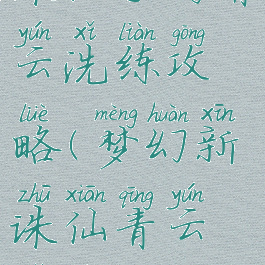 yún xǐ liàn gōng
云洗练攻
lüè mèng huàn xīn
略(梦幻新
zhū xiān qīng yún
诛仙青云